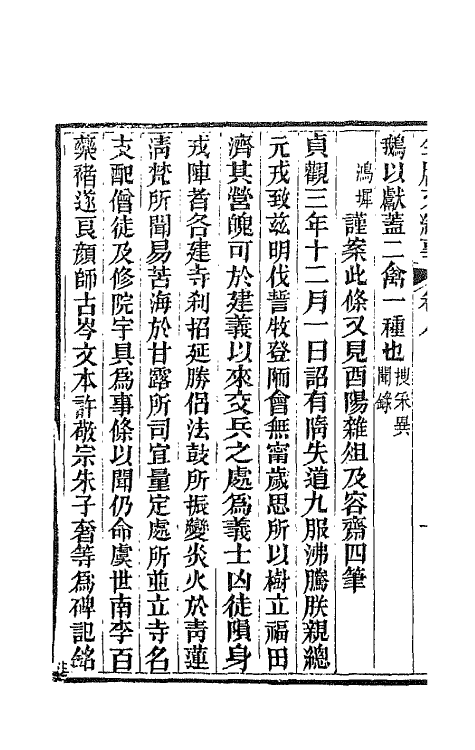 鵝以獻蓋二禽一種也搜采異聞錄
鴻墀謹案此條又見酉陽雜俎及容齋四筆
貞觀三年十二月一日詔有隋失道九服沸騰朕親總
元戎致茲明伐誓牧登陑會無甯歲思所以樹立福田
濟其營魄可於建義以來交兵之處爲義士凶徒隕身
戎陣者各建寺刹招延勝侶法鼓所振變炎火於靑蓮
淸梵所聞易苦海於甘露所司宜量定處所並立寺名
支配僧徒及修院宇具爲事條以聞仍命虞世南李百
藥褚遂良顏師古岑文本許敬宗朱子奢等爲碑記銘